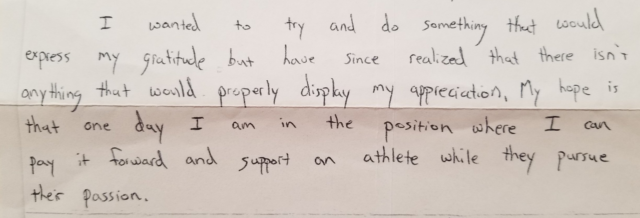 I wanted to try and do something that would
express my gratitude but have since realized that there isn't
anything that would properly display my appreciation. My hope is
that one day I am in the position where I can
pay it forward and support an athlete while they pursue
their passion.